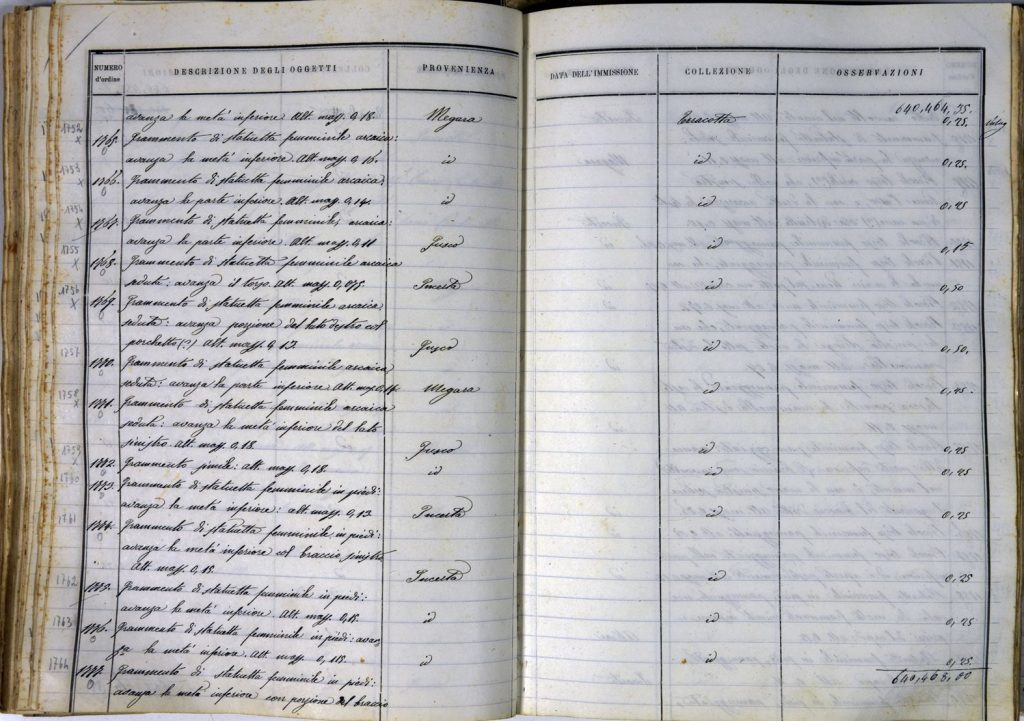 NUMERO d'ordine
DESCRIZIONE DEGLI OGGETTI
PROVENIENZA
DATA DELL'IMMISSIONE
COLLEZIONE
OSSERVAZIONI
640,464,75.
avanza la metà inferiore. Alt. mass. 0,18. Megara Terracotta 0,25.
1752
Frammento di statuetta femminile arcaica:
avanza la metà inferiore. Alt. mass. 0,16. id id 0,25.
1753 1766. Frammento di statuetta femminile arcaica:
avanza la parte inferiore. Alt. mass. 0,14. id id 0,25
1754 Frammento di statuetta femminile, arcaica:
avanza la parte inferiore. Alt. mass. 0,11 Fusco id 0,15
1755 1768. Frammento di statuetta femminile arcaica
seduta: avanza il torso. Alt. mass. 0,075. Incerta id 0,50
1756 1769. Frammento di statuetta femminile arcaica
seduta: avanza porzione del lato destro col
porchetto(?) Alt. mass. 0,13. Fusco id 0,50.
1757 1770. Frammento di statuetta femminile arcaica
seduta: avanza la parte inferiore. Alt. mass. Megara id 0,25.
1758 1771. Frammento di statuetta femminile arcaica
seduta: avanza la metà inferiore del lato
sinistro. Alt. mass. 0,18. Fusco id 0,25
1759 1772. Frammento simile: alt. mass. 0,18. id id 0,25
1760 1773. Frammento di statuetta femminile in piedi:
avanza la metà inferiore: alt. mass. 0,13. Incerta id 0,25
1761 1774. Frammento di statuetta femminile, in piedi:
avanza la metà inferiore col braccio sinistro
Alt. mass. 0,18. Incerta id 0,25
1762 1775. Frammento di statuetta femminile in piedi:
avanza la metà inferiore. Alt. mass. 0,18. id id 0,25
1763 1776. Frammento di statuetta femminile in piedi: avan-
za la metà inferiore. Alt. mass. 0,115. id id 0,25.
1764 1777. Frammento di statuetta femminile in piedi:
640,468,00
avanza la metà inferiore con porzione del braccio